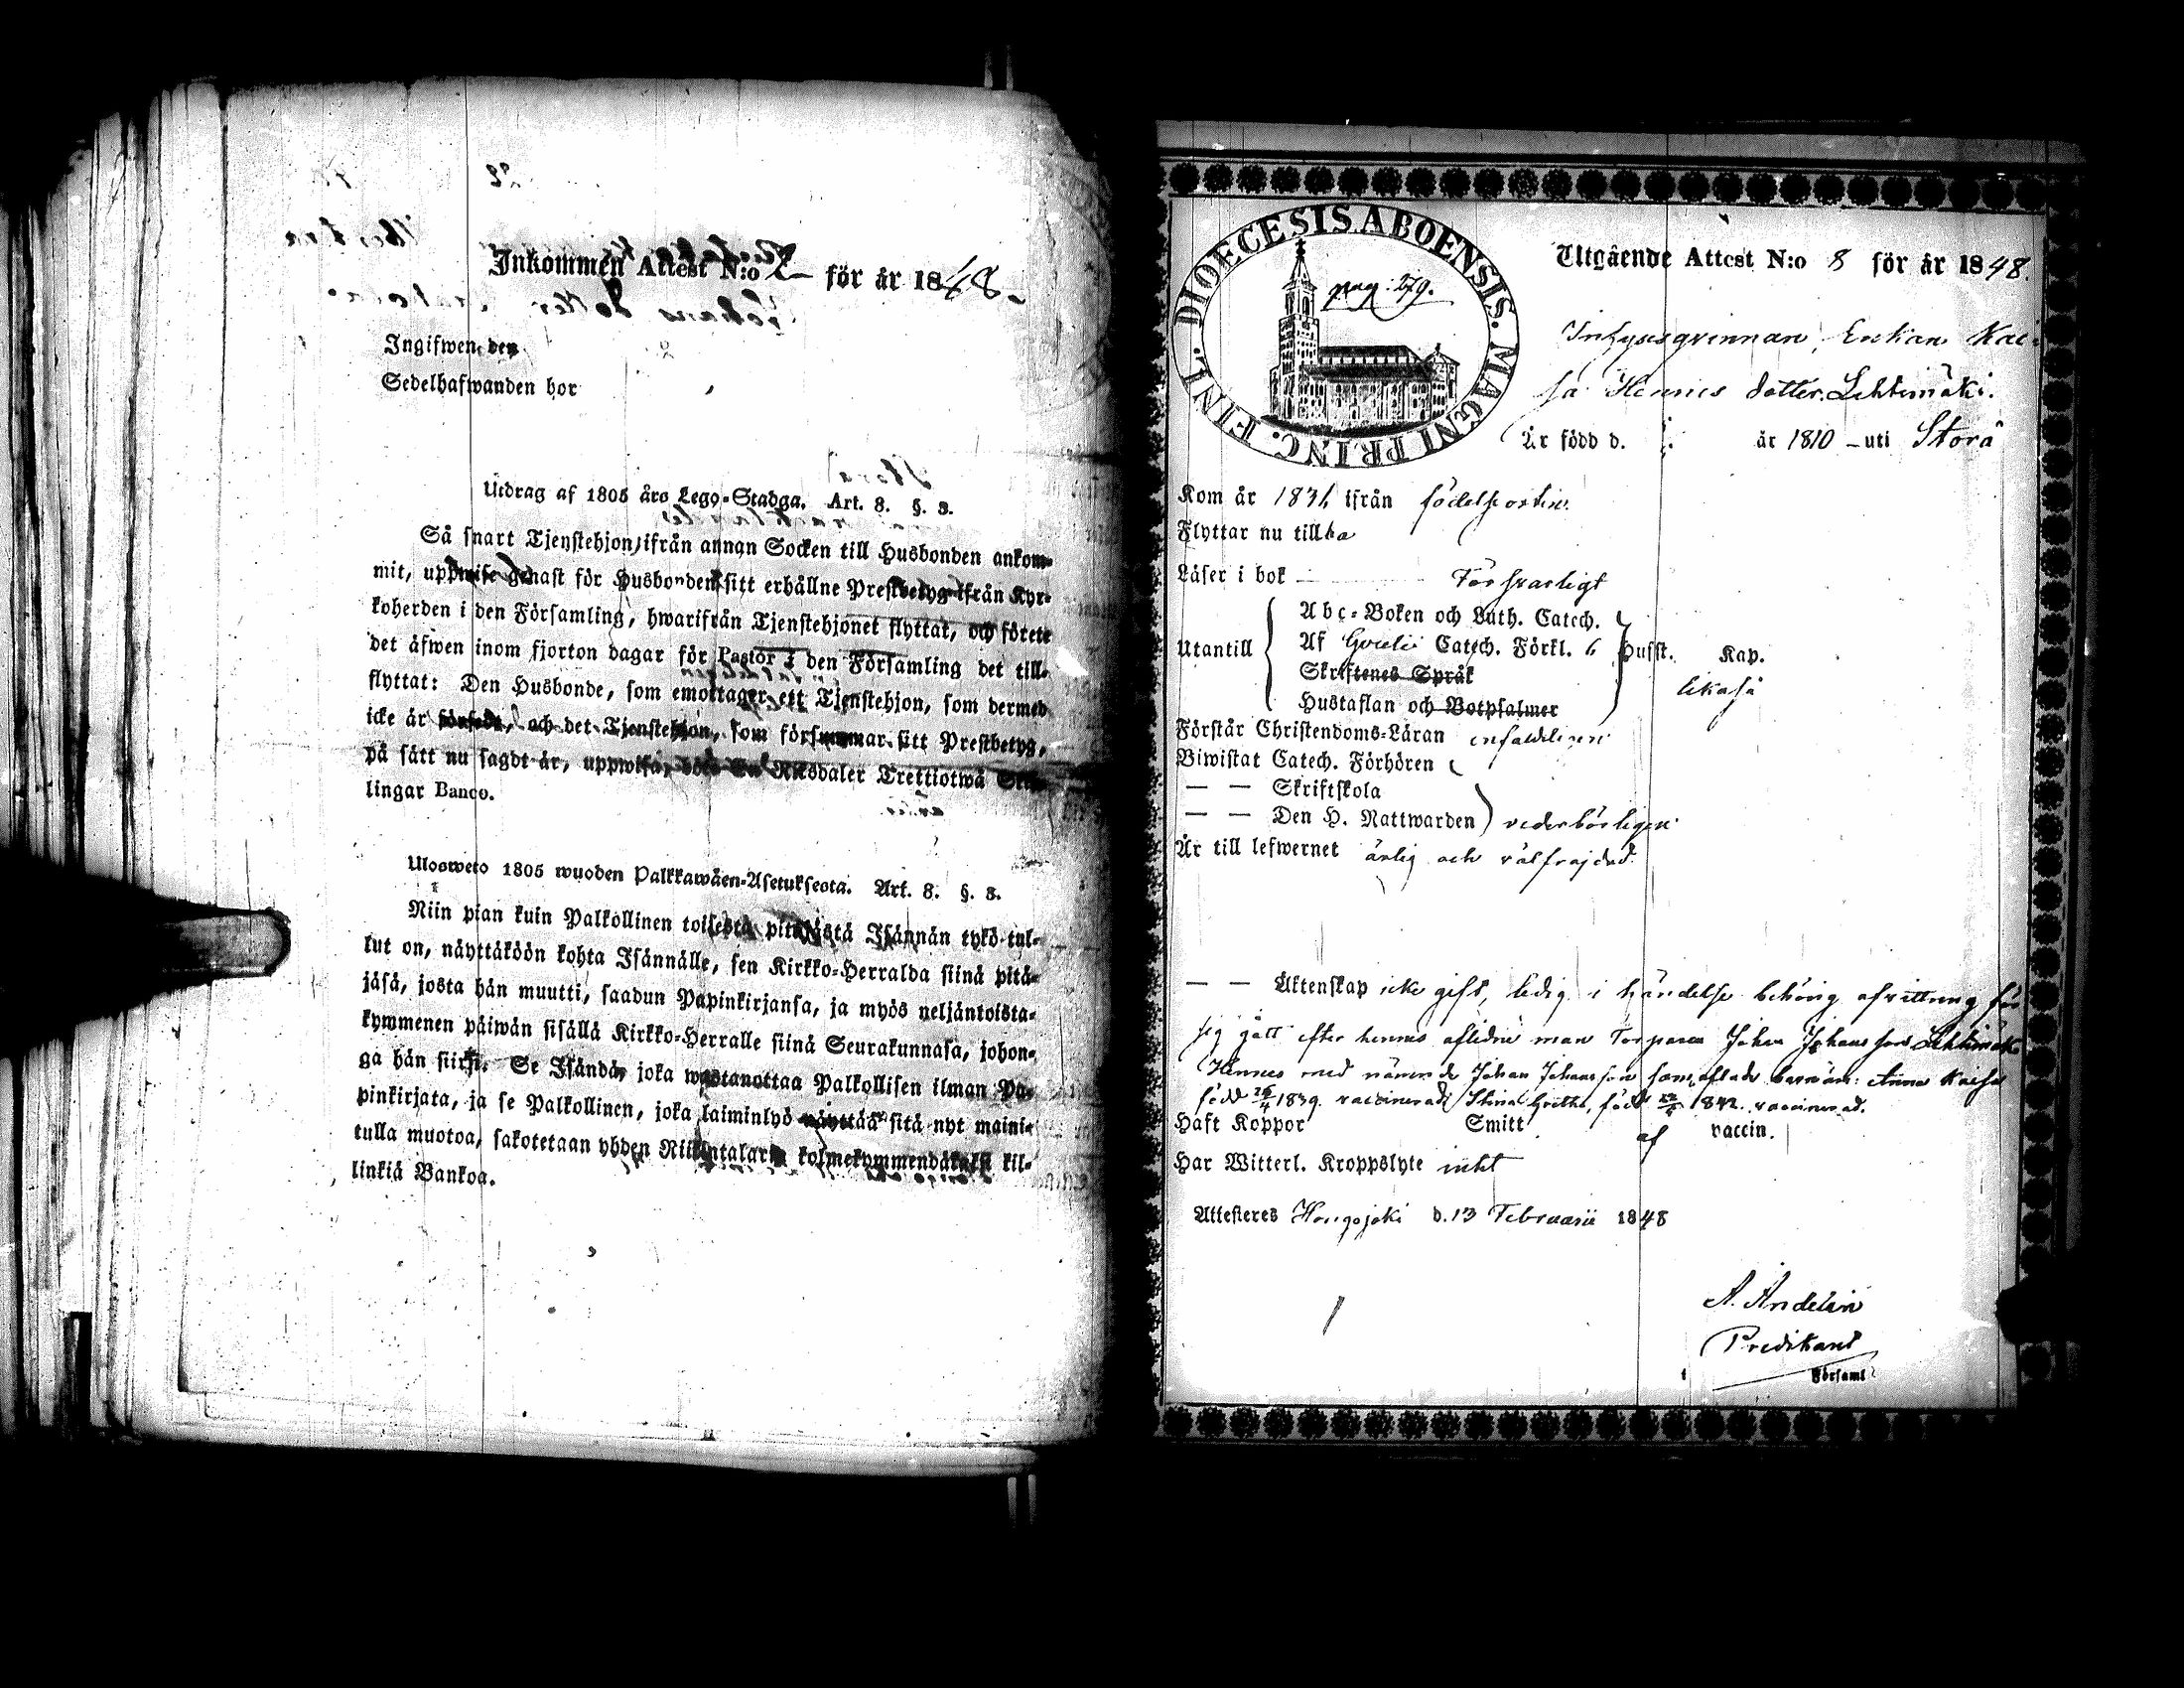 Inkommen Attest N:o 2 för år 1848
Ingifwen den
Sedelhafwanden bor
Utdrag af 1805 års Lego-Stadga. Art. 8. §. 3.
Så snart Tjenstehjon ifrån annan Socken till Husbonden ankom-
mit, uppwise genast för Husbonden sitt erhållne Prestbetyg ifrån Kyr-
koherden i den Församling, hwarifrån Tjenstehjonet flyttat, och förete
det äfwen inom fjorton dagar för Pastor i den Församling det till-
flyttat: Den Husbonde, som emottager ett Tjenstehjon, som dermed
icke är försedt, och det Tjenstehjon, som försummar sitt Prestbetyg,
på sätt nu sagdt är, uppwisa, Riksdaler Trettiotwå
lingar Banco.
Ulosweto 1805 wuoden Palkkawäen-Asetuksesta. Art. 8. §. 3.
Niin pian kuin Palkollinen toisesta pitäjästä Isännän tykö tul-
lut on, näyttäköön kohta Isännälle, sen Kirkko-Herralda siinä pitä-
jäsä, josta hän muutti, saadun Papinkirjansa, ja myös neljäntoista-
kymmenen päiwän sisällä Kirkko-Herralle siinä Seurakunnasa, johon-
ga hän siirsi. Se Isändä, joka wastanottaa Palkollisen ilman Pa-
pinkirjata, ja se Palkollinen, joka laiminlyö näyttää sitä nyt maini-
tulla muotoa, sakotetaan yhden Riikintalarin kolmekymmendäkaksi kil-
linkiä Bankoa.
DIOECESIS ABOENSIS. MAGNI PRINC. FINL.
pag: 279.
Utgående Attest N:o 8 för år 1848.
Inhysesqvinnan, Enkan Kai-
sa Hennes dotter Lehtimäki.
Är född d. år 1810 - uti Storå
Kom år 1831 ifrån födelseorten
Flyttar nu tillba
Läser i bok Försvarligt
Utantill
Abc-Boken och Luth. Catech.
Af Catech. Förkl. 6 Hufst. Kap.
Skriftenes Språk
likaså
Hustaflan och Botpsalmer
Förstår Christendoms-Läran enfaldeligen
Biwistat Catech. Förhören
— — Skriftskola
— — Den H. Nattwarden vederbörligen
Är till lefwernet ärlig och välfrajdad
— — Äktenskap icke gift, ledig i händelse behörig afvittring för
sig gått efter hennes aflidne man Torparen Johan Johansson Lehtimäki
Hennes med nämnde Johan Johansson sam aflade barn äro: Anna Kaisa
född 26/4 1839. vaccinerad, Stina Gretha, född 1842. vaccinerad.
Haft Koppor Smitt af vaccin.
Har Witterl. Kroppslyte intet
Attesteras Hongojoki d. 13 Februarii 1848
A. Andelin
Predikant
i Församl